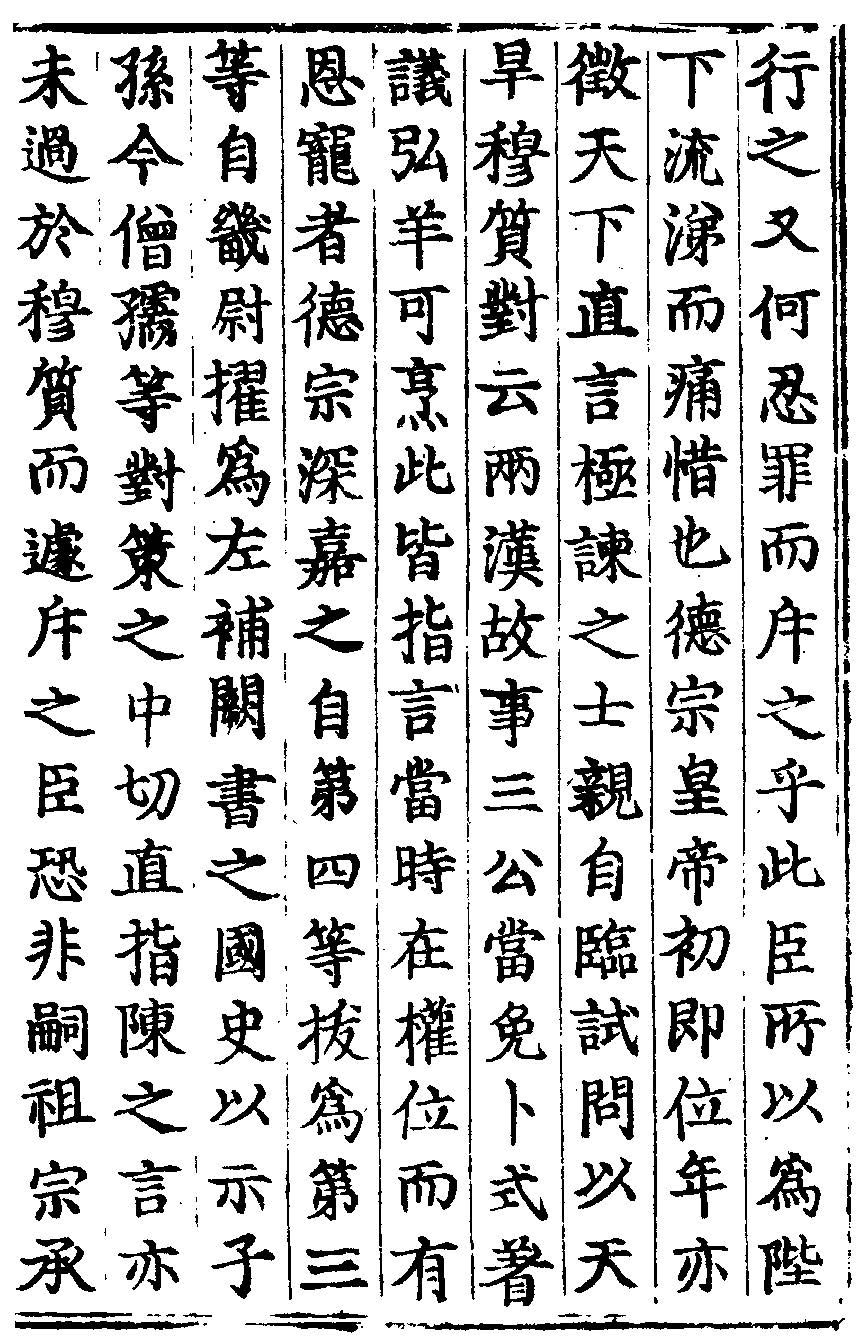 行之又何忍罪而斥之乎此臣所以為陛
下流涕而痛惜也德宗皇帝初即位年亦
徵天下直言極諫之士親自臨試問以天
旱穆質對云兩漢故事三公當免卜式著
議弘羊可烹此皆指言當時在權位而有
恩寵者德宗深嘉之自第四等拔為第三
等自畿尉擢為左補闕書之國史以示子
孫今僧孺等對策之中切直指陳之言亦
未過於穆質而遽斥之臣恐非嗣祖宗承